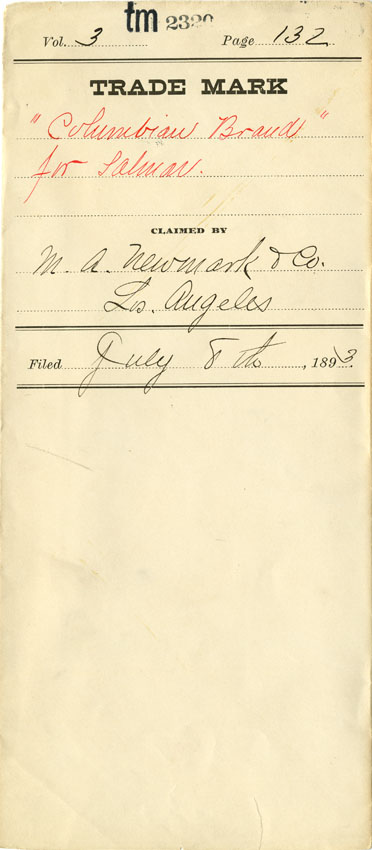 tm 2320
Vol. 3 Page 132
TRADE MARK
"Columbian Brand"
for Salmon.
CLAIMED BY
M. A. Newmark & Co.
Los Angeles
Filed July 8th, 1893.